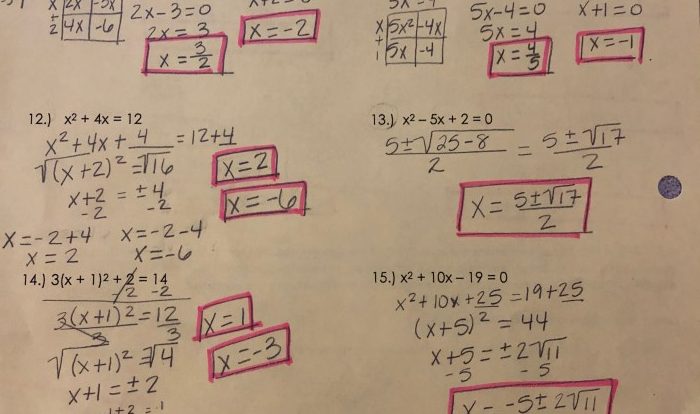 x 2x -3x
+ 2 4x -6
2x-3=0
2x = 3
x = 3/2
x = -2
x 5x² -4x
+ 1 5x -4
5x-4=0
5x = 4
x = 4/5
x+1=0
x = -1
12.) x² + 4x = 12
x² + 4x + 4 = 12+4
√(x+2)² = √16
x+2 = ±4
-2 -2
x = -2+4 x = -2-4
x = 2 x = -6
x = 2
x = -6
13.) x² – 5x + 2 = 0
5±√25-8 / 2 = 5±√17 / 2
x = 5±√17 / 2
14.) 3(x + 1)² + 2 = 14
-2 -2
3(x+1)² = 12
3 3
√(x+1)² = √4
x+1 = ±2
x = 1
x = -3
15.) x² + 10x – 19 = 0
x² + 10x + 25 = 19+25
(x+5)² = 44
x+5 = ±2√11
-5 -5
x = -5±2√11